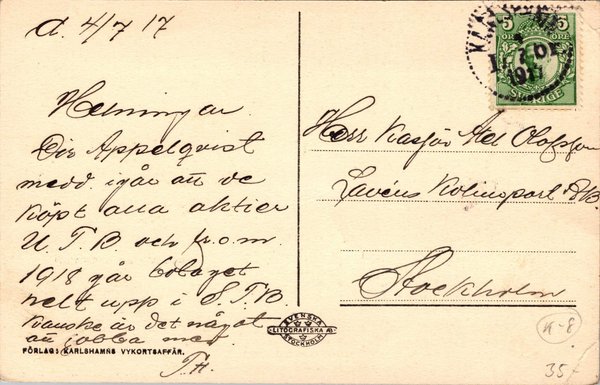 d. 4/7 17
Helningar
Dir Appelqvist
medd. igår att de
köpt alla aktier
U.T.B. och fr.o.m.
1918 går bolaget
helt upp i S.T.B.
Kanske är det något
att jobba med
T.H.
FÖRLAG: KARLSHAMNS VYKORTSAFFÄR.
SVENSKA
LITOGRAFISKA AB
STOCKHOLM
5 5
ÖRE ÖRE
SVERIGE
1917
Herr Kassör Axel Olofsson
Kolimport AB.
Stockholm
K-8
35:-